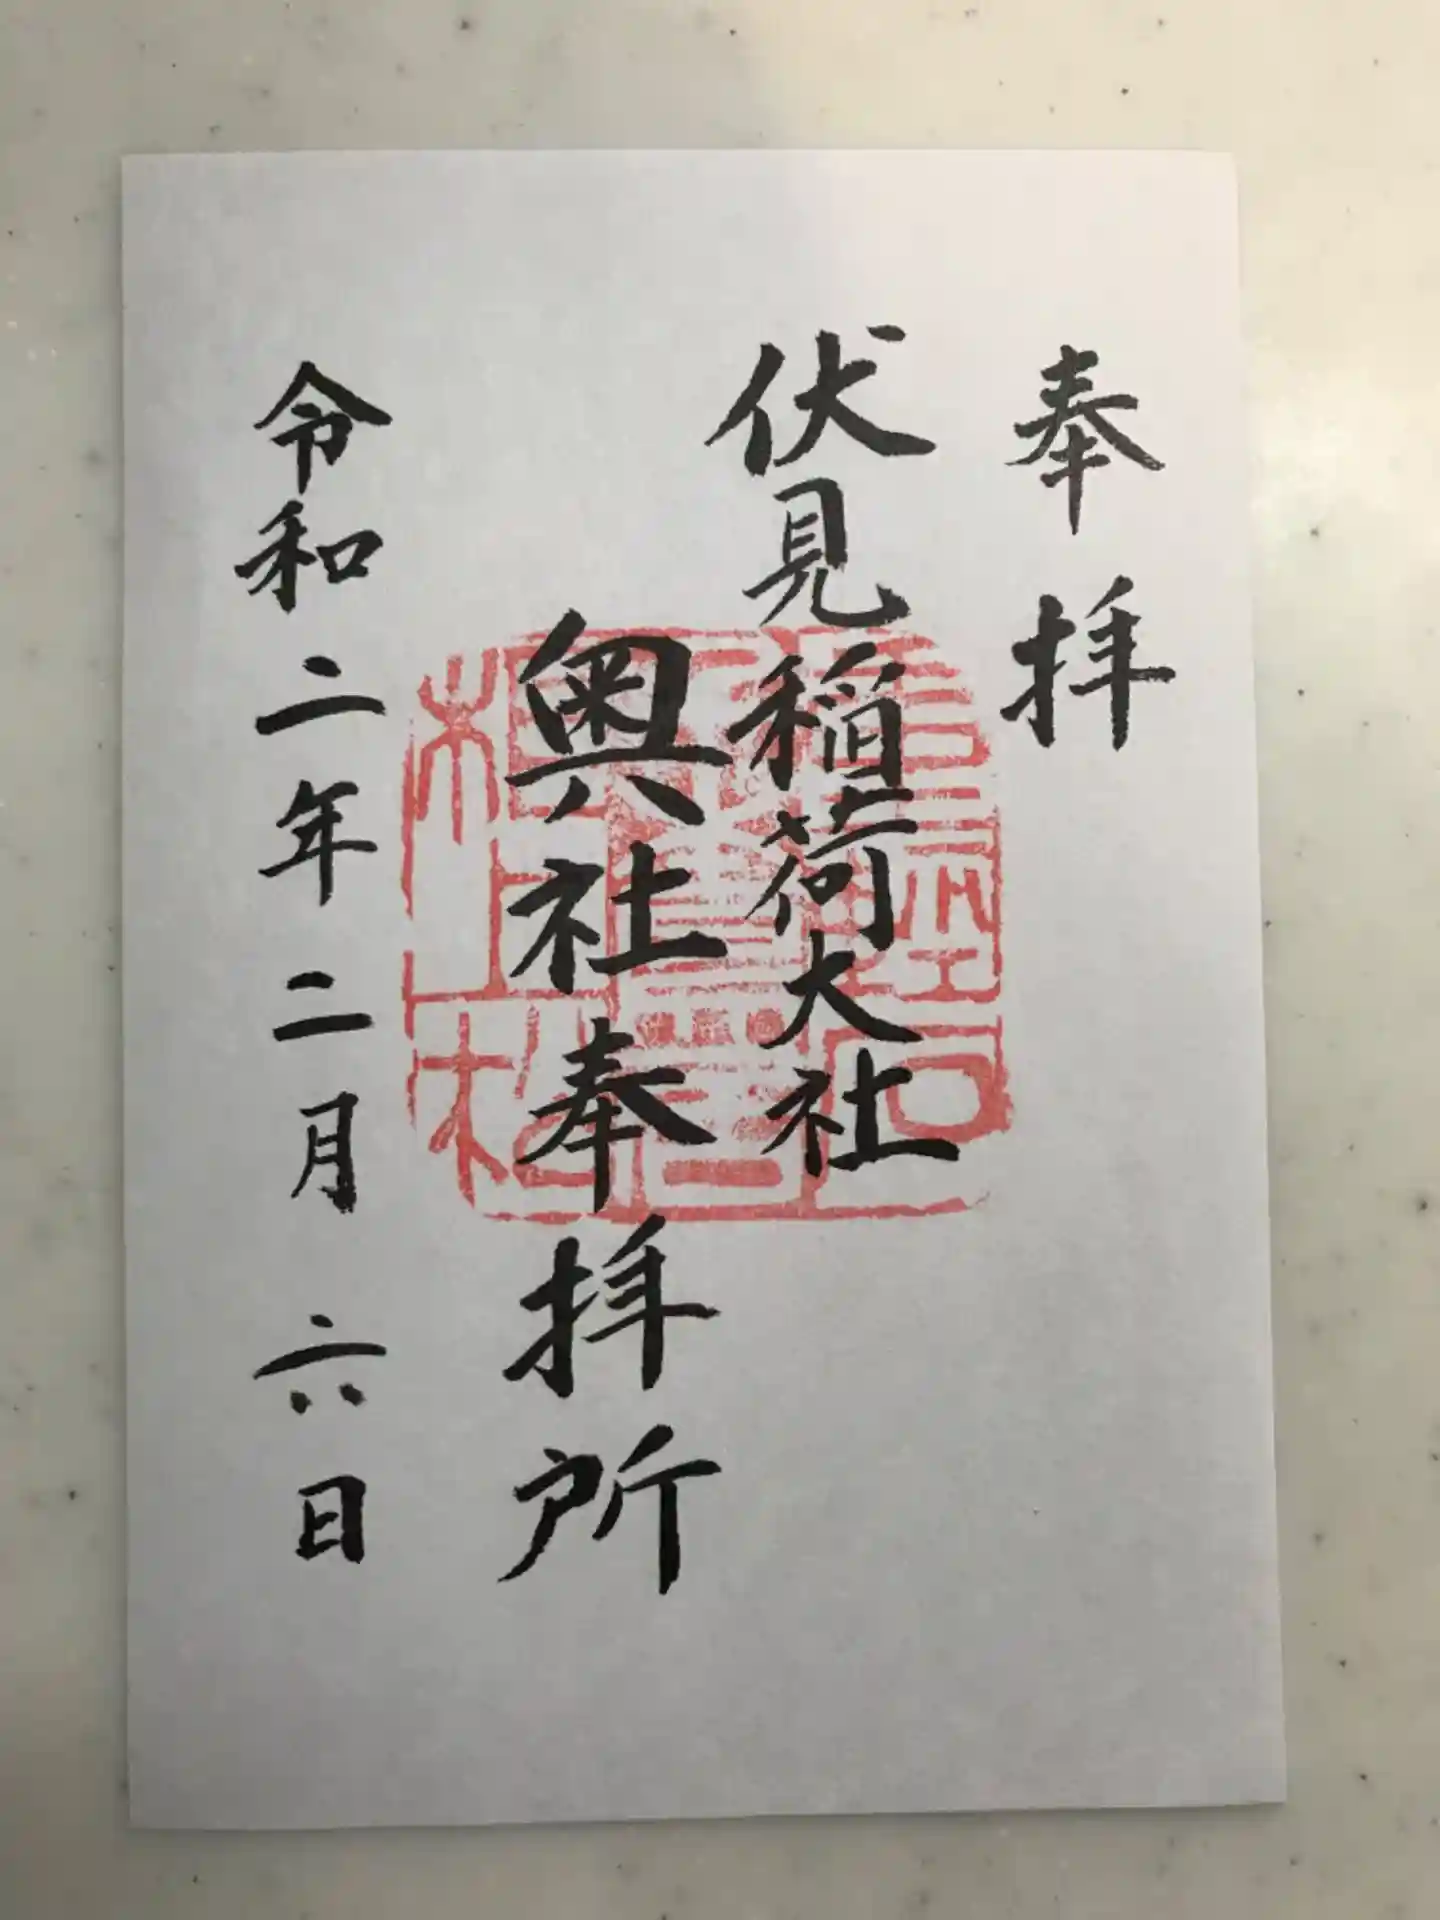 奉拝
伏見稲荷大社
奥社奉拝所
令和二年二月六日